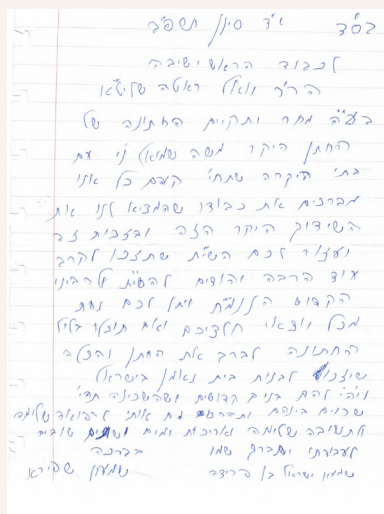 בס"ד י"ד סיון תשפ"ב
לכבוד הראש ישיבה
הר"ר שליט"א
בע"ה מחר תקיים החתונה של
החתן היקר משה שמואל ני' עם
בתי היקרה שתחי' כל אנו
מברכים את כבודו שהמציא לנו את
השידוך היקר הזה ובזכות זה
יעזור לכם השי"ת שתזכו לקרב
עוד הרבה יהודים להשי"ת ולרבינו
הקדוש יתן לכם נחת
מכל יוצאי חלציכם ואם תוכלו בליל
החתונה לברך את החתן והכלה
שיזכו לבנות בית נאמן בישראל
ויהי' להם בנים קדושים ושהשכינה תהי'
שרוים ביניהם ותברכו גם אותי לרפואה שלימה
לתשובה שלימה ואריכות ימים ושנים טובים
לעבודתו יתברך שמו בברכה
שמעון ישראל בן שמעון שפירא